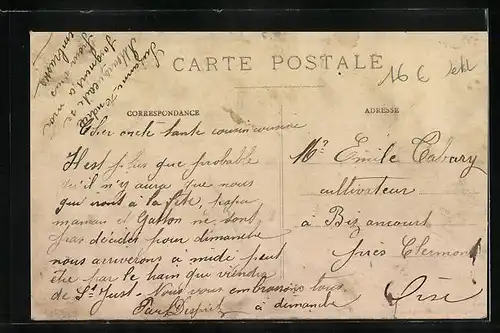 CARTE POSTALE
16 €
CORRESPONDANCE
ADRESSE
Cher oncle tante cousin cousine
Il est plus que probable
qu'il n'y aura que nous
qui iront à la fête, papa
maman et Gaston ne sont
pas décidés pour dimanche
nous arriverons à midi peut
être par le train qui viendra
de St Just. Nous vous embrassons tous
à dimanche
Mr Emile Cabary
cultivateur
à
près Clermont
Oise
embrasse